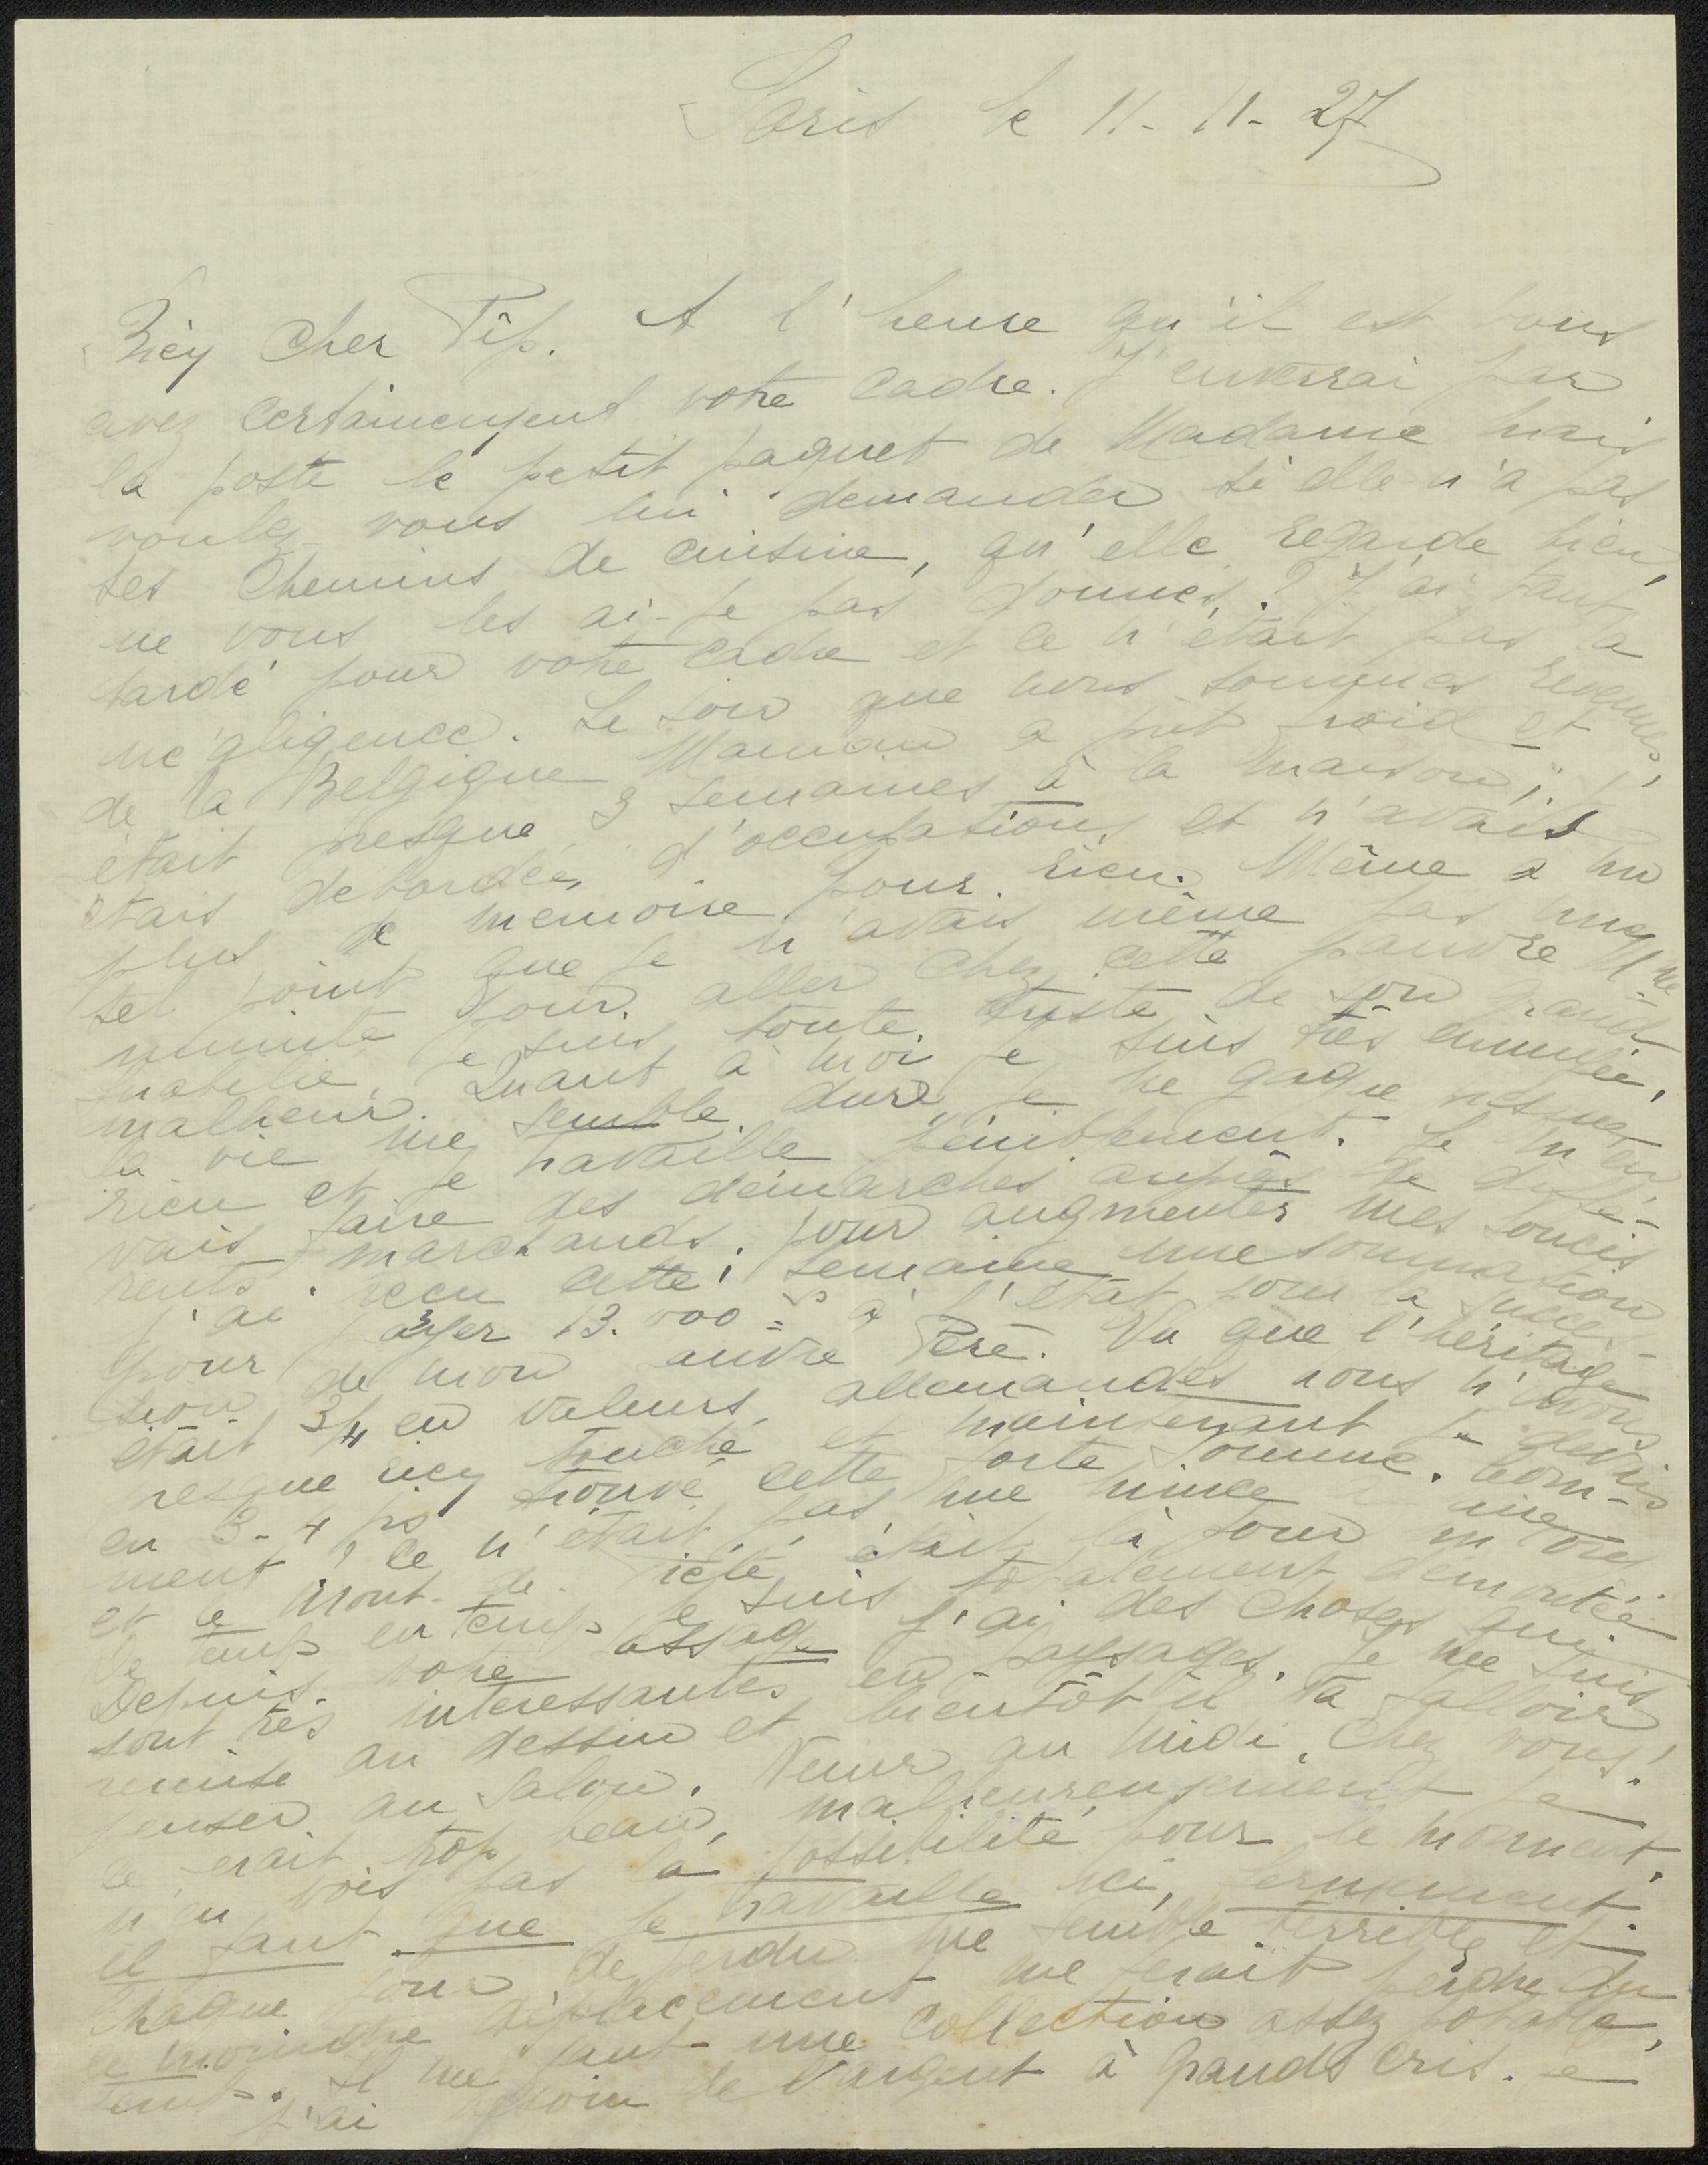 Paris le 11-11-27
Bien Cher Pip. A l'heure qu'il est vous
avez certainement votre cadre. J'enverrai par
la poste le petit paquet de Madame mais
voulez-vous lui demander si elle n'a pas
ses chemins de cuisine, qu'elle regarde bien,
ne vous les ai-je pas donnés? J'ai tant
tardé pour votre cadre et ce n'était pas la
négligence. Le soir que nous sommes revenues
de la Belgique Maman a prit froid et
était presque 3 semaines à la maison; j'
étais debordée d'occupations et n'avais
plus de memoire pour rien. Même a un
tel point que je n'avais même pas une
minute pour aller chez cette pauvre Mme
je suis toute triste de son grand
malheur. Quant à moi je suis très ennuyée,
la vie me semble dure, je ne gagne presque
rien et je travaille péniblement. Je m'en
vais faire des démarches auprès de diffé-
rents marchands. pour augmenter mes soucis
j'ai reçu cette semaine une sommation
pour payer 13.000 = à l'état pour la succes-
sion de mon Père. Vu que l'héritage
était 3/4 en valeurs allemandes nous n'avons
presque rien touché et maintenant je devais
en 3-4 trouvé cette forte somme. Com-
ment? Ce n'était pas une mince
et le Mont-de-Piété était là pour
le temps en temps je suis totalement démontée
Depuis votre passage j'ai des choses qui
sont très interessantes en paysages. Je me suis
remise au dessin et bientôt il va falloir
penser au Salon. Venir au midi, chez vous!
ce serait trop beau, malheureusement je
n'en vois pas la possibilité pour le moment.
il faut que je travaille ici, fermement.
Chaque jour de perdu me semble terrible et
le moindre déplacement me ferait perdre du
temps. Il me faut une collection assez potable,
j'ai besoin de l'argent à grands cris. Je